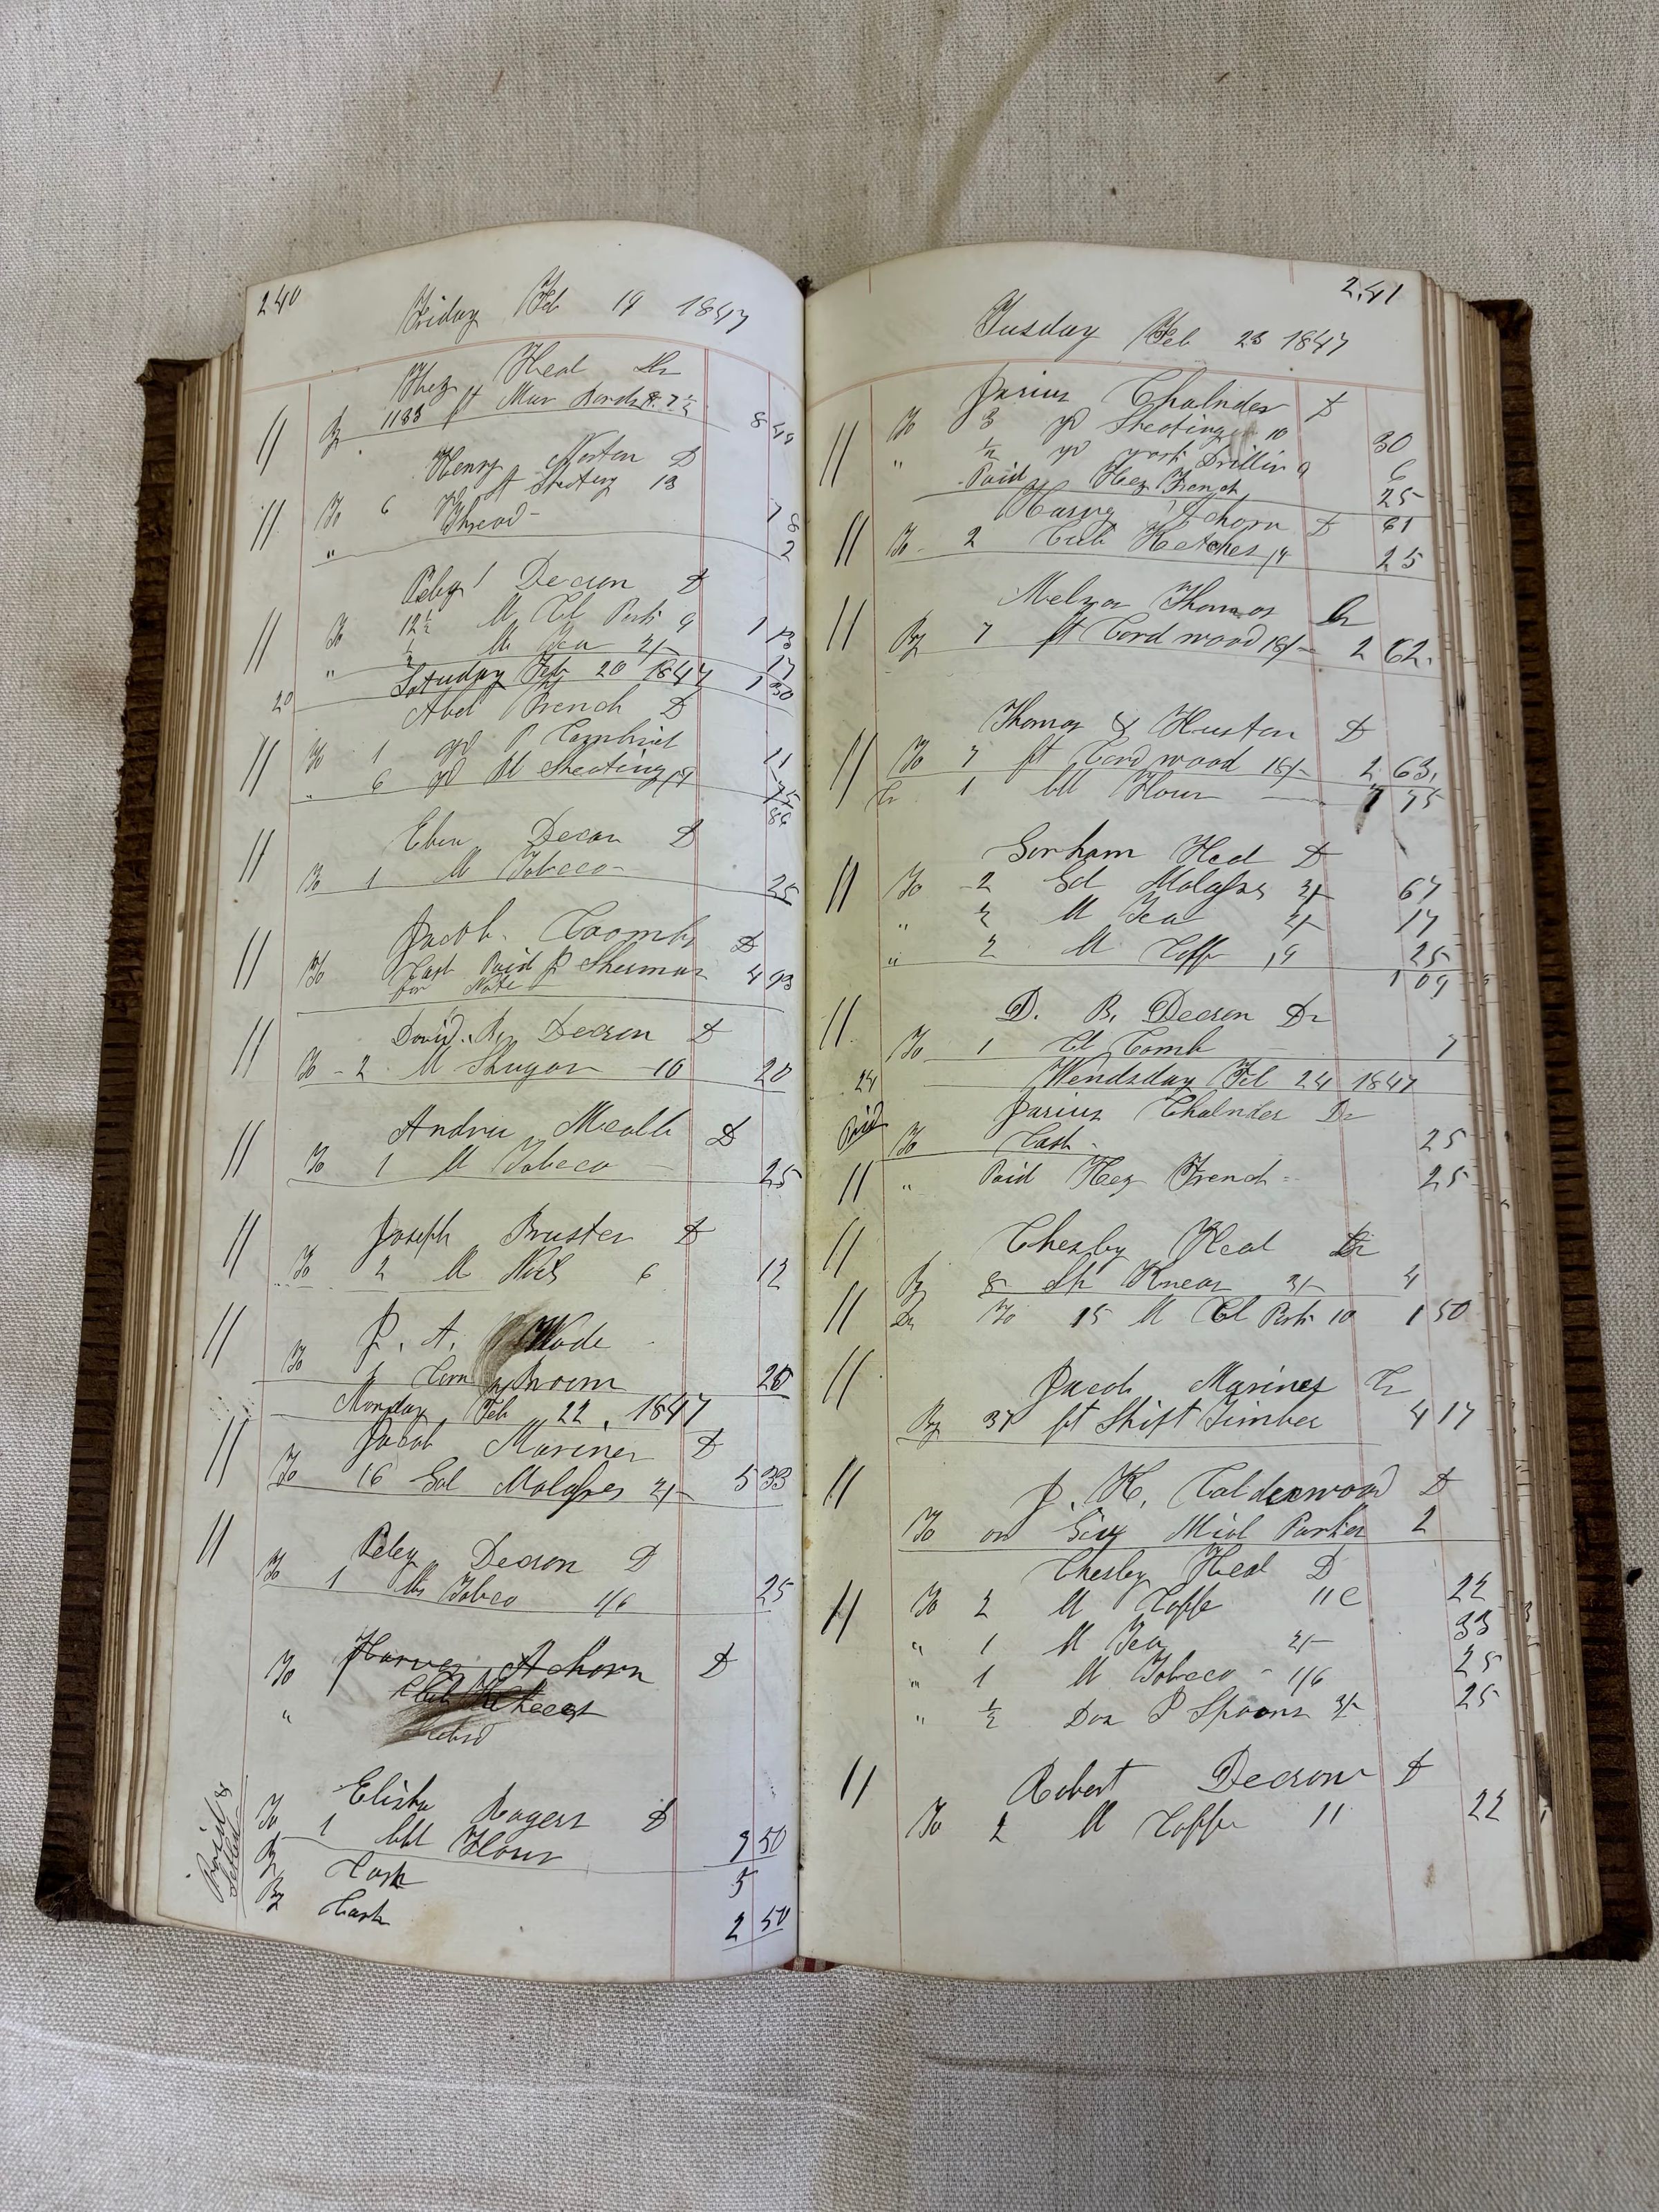 240
Friday Feb 19 1847
Hez Heal Cr
11 By 1133 ft Mar 7 1/2 8 49
Henry Norton D
11 To 6 ft Sheeting 13 78
" Thread - 2
Peleg Decron D
11 To 12 1/2 ll Cl Pork 9 1 13
" 1/2 ll Tea 2/- 17
1 30
20 Saturday Feb 20 1847
Abel French D
11 To 1 yd P Cambrick 11
" 6 yd Bl Sheeting 1/9 75
86
Eben Decron D
11 To 1 ll Tobeco - 25
Jacob Coombs D
11 To Cash Paid P Sherman 4 93
for Note
David R. Decron D
11 To - 2 ll Shugar - 10 20
Andru Micalb D
11 To 1 ll Tobeco - 25
Joseph Bruster D
11 To 2 ll 6 12
11 P. A. Wade
To 1 Corn Broom 20
Monday Feb 22, 1847
11 Jacob Mariner D
To 16 Gal Molasses 2/- 5 33
11 Peleg Decron D
To 1 lbs Tobeco 1/6 25
To Harvey Achorn D
"
Elisha Rogers D
Paid & Settled
To 1 bbl Flour 7 50
By Cash 5
By Cash 2 50
2,41
Tusday Feb 23 1847
Jarius Chalnder D
11 To 3 yd Sheeting 10 30
" 1/2 yd Drilling 6
Paid Hez French 25
61
Harvy Achorn D
11 To - 2 Cub Hetches 1/9 25
Melzor Thomas Cr
11 By 7 ft Cord wood 18/- 2 62.
Thomas & Huston D
11 To 7 ft Cord wood 18/- 2 63,
Cr 1 bbl Flour 7 75
Gorham Head D
11 To 2 Gal Molasses 2/- 67
" 1/2 ll Tea 2/- 17
" 2 ll Coffe 1/9 25
1 09
11 D. R. Decron Dr
To 1 Cl Comb 7
24 Wendsday Feb 24 1847
Jarius Chalnder Dr
Paid To Cash - 25
11 " Paid Hez French - 25
11 Chesley Heal Cr
By 8 Sh Knear 3/- 4
11 Dr To 15 ll Cl Pork 10 1 50
11 Jacob Mariner Cr
By 37 ft Shift Timber 4 17
11 J. H. Calderwood D
To on Miol Parker 2
Chesley Heal D
11 To 2 ll Coffe 11 c 22
" 1 ll Tea 2/- 33
" 1 ll Tobeco - 1/6 25
" 1/2 Doz P Spoons 3/- 25
11 Robert Decrow D
To 2 ll Coffe 11 22